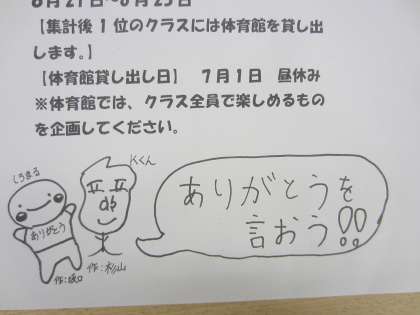 6月21日~6月25日
【集計後1位のクラスには体育館を貸し出
します。】
【体育館貸し出し日】 7月1日 昼休み
※体育館では、クラス全員で楽しめるもの
を企画してください。
Kくん
しろまる
ありがとうを
言おう!!
ありがとう
作:坂口
作:杉山